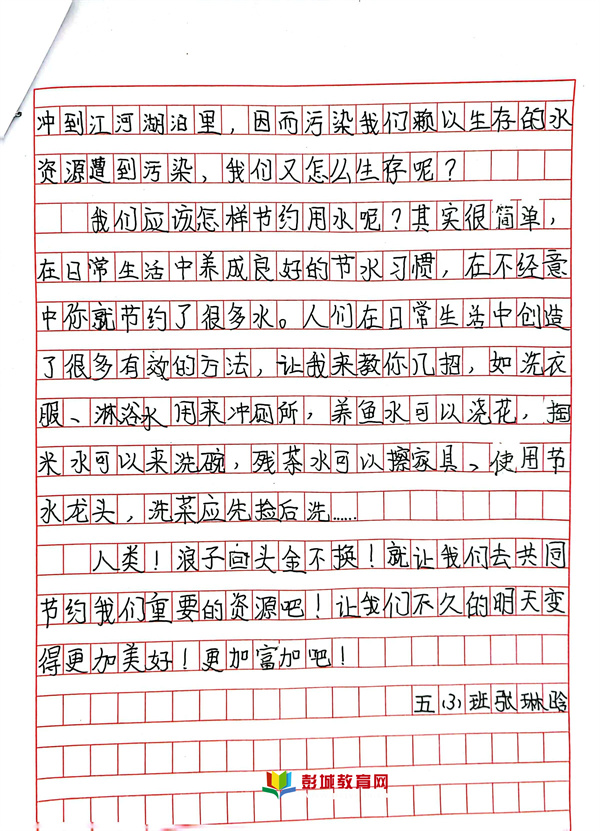 冲到江河湖泊里，因而污染我们赖以生存的水
资源遭到污染、我们又怎么生存呢？
我们应该怎样节约用水呢？其实很简单，
在日常生活中养成良好的节水习惯，在不经意
中你就节约了很多水。人们在日常生活中创造
了很多有效的方法，让我来教你几招，如洗衣
服、淋浴水用来冲厕所，养鱼水可以浇花，掏
米水可以来洗碗，残茶水可以擦家具、使用节
水龙头，洗菜应先捡后洗……
人类！浪子回头金不换！就让我们去共同
节约我们重要的资源吧！让我们不久的明天变
得更加美好！更加富加吧！
五(3)班张琳晗
彭城教育网